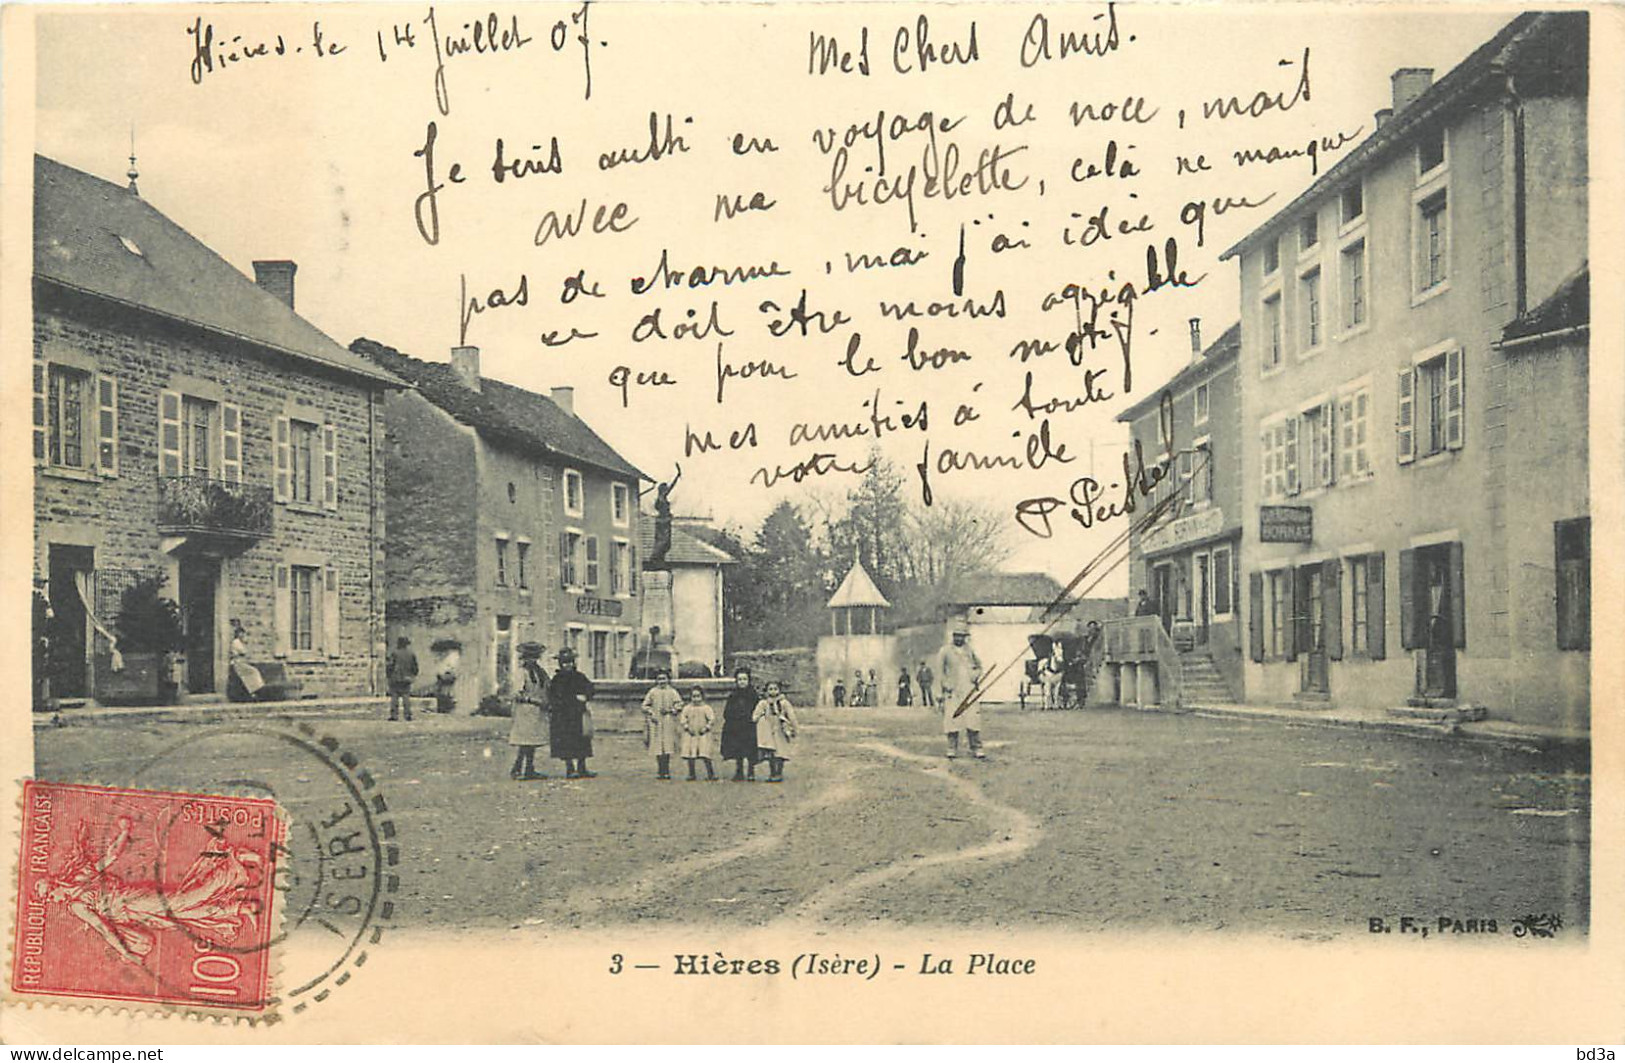 Hières. le 14 Juillet 07.
Mes Chers Amis.
Je suis aussi en voyage de noce, mais
avec ma bicyclette, celà ne manque
pas de charme, mai j'ai idée que
ce doit être moins agréable
que pour le bon motif.
Mes amitiés à toute
votre famille
CAFÉ
3 — Hières (Isère) - La Place
B. F., PARIS
RÉPUBLIQUE FRANÇAISE
POSTES
10c
14
07
ISERE
delcampe.net
bd3a